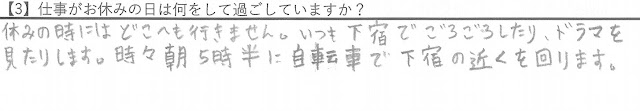 【3】仕事がお休みの日は何をして過ごしていますか？
休みの時にはどこへも行きません。いつも下宿でごろごろしたり、ドラマを
見たりします。時々朝5時半に自転車で下宿の近くを回ります。